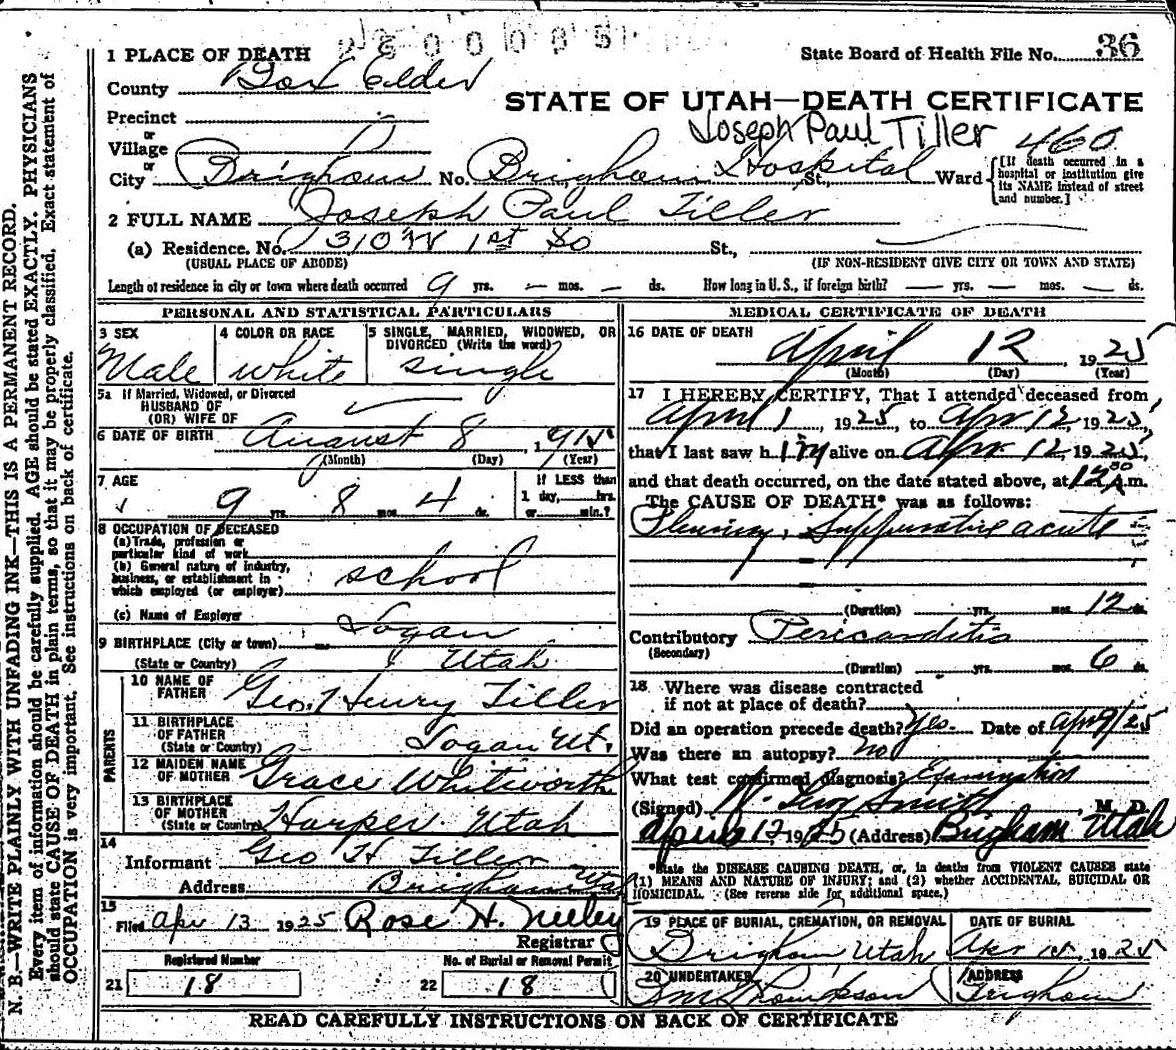 N. B.—WRITE PLAINLY WITH UNFADING INK—THIS IS A PERMANENT RECORD.
Every item of information should be carefully supplied. AGE should be stated EXACTLY. PHYSICIANS
should state CAUSE OF DEATH in plain terms, so that it may be properly classified. Exact statement of
OCCUPATION is very important. See instructions on back of certificate.
1 PLACE OF DEATH
State Board of Health File No. 36
County Box Elder
STATE OF UTAH—DEATH CERTIFICATE
Precinct
Joseph Paul Tiller 460
or
Village
or
City Brigham No. Brigham Hospital St., Ward
[If death occurred in a
hospital or institution give
its NAME instead of street
and number.]
2 FULL NAME Joseph Paul Tiller
(a) Residence. No. 310 W 1st So St.,
(USUAL PLACE OF ABODE) (IF NON-RESIDENT GIVE CITY OR TOWN AND STATE)
Length of residence in city or town where death occurred 9 yrs. — mos. — ds. How long in U. S., if foreign birth? — yrs. — mos. — ds.
PERSONAL AND STATISTICAL PARTICULARS
3 SEX Male
4 COLOR OR RACE white
5 SINGLE, MARRIED, WIDOWED, OR
DIVORCED (Write the word) single
5a If Married, Widowed, or Divorced
HUSBAND OF
(OR) WIFE OF
6 DATE OF BIRTH August 8, 1915
(Month) (Day) (Year)
7 AGE 9 yrs. 8 mos. 4 ds.
If LESS than
1 day, hrs.
or min.?
8 OCCUPATION OF DECEASED
(a) Trade, profession or
particular kind of work
(b) General nature of industry,
business, or establishment in
which employed (or employer) school
(c) Name of Employer
9 BIRTHPLACE (City or town) Logan
(State or Country) Utah
PARENTS
10 NAME OF
FATHER Geo. Henry Tiller
11 BIRTHPLACE
OF FATHER
(State or Country) Logan Ut.
12 MAIDEN NAME
OF MOTHER Grace Whitworth
13 BIRTHPLACE
OF MOTHER
(State or Country) Harper Utah
14
Informant Geo H Tiller
Address Brigham Utah
15
Filed Apr 13 1925 Rose H. Neeley
Registrar
Registered Number
21 18
No. of Burial or Removal Permit
22 18
MEDICAL CERTIFICATE OF DEATH
16 DATE OF DEATH
April 12, 1925
(Month) (Day) (Year)
17 I HEREBY CERTIFY, That I attended deceased from
April 1, 1925, to Apr 12, 1925,
that I last saw him alive on Apr. 12, 1925,
and that death occurred, on the date stated above, at 12 30 A.m.
The CAUSE OF DEATH* was as follows:
Pleurisy, Suppurative acute
(Duration) yrs. mos. 12 ds.
Contributory Pericarditis
(Secondary)
(Duration) yrs. mos. 6 ds.
18 Where was disease contracted
if not at place of death?
Did an operation precede death? Yes. Date of Apr 9/25
Was there an autopsy? No
What test confirmed diagnosis? Examination
(Signed) Smith M. D.
April 12, 1925 (Address) Brigham Utah
*State the DISEASE CAUSING DEATH, or, in deaths from VIOLENT CAUSES state
(1) MEANS AND NATURE OF INJURY; and (2) whether ACCIDENTAL, SUICIDAL OR
HOMICIDAL. (See reverse side for additional space.)
19 PLACE OF BURIAL, CREMATION, OR REMOVAL
Brigham Utah
DATE OF BURIAL
Apr 1925
20 UNDERTAKER
Thompson
ADDRESS
Brigham
READ CAREFULLY INSTRUCTIONS ON BACK OF CERTIFICATE